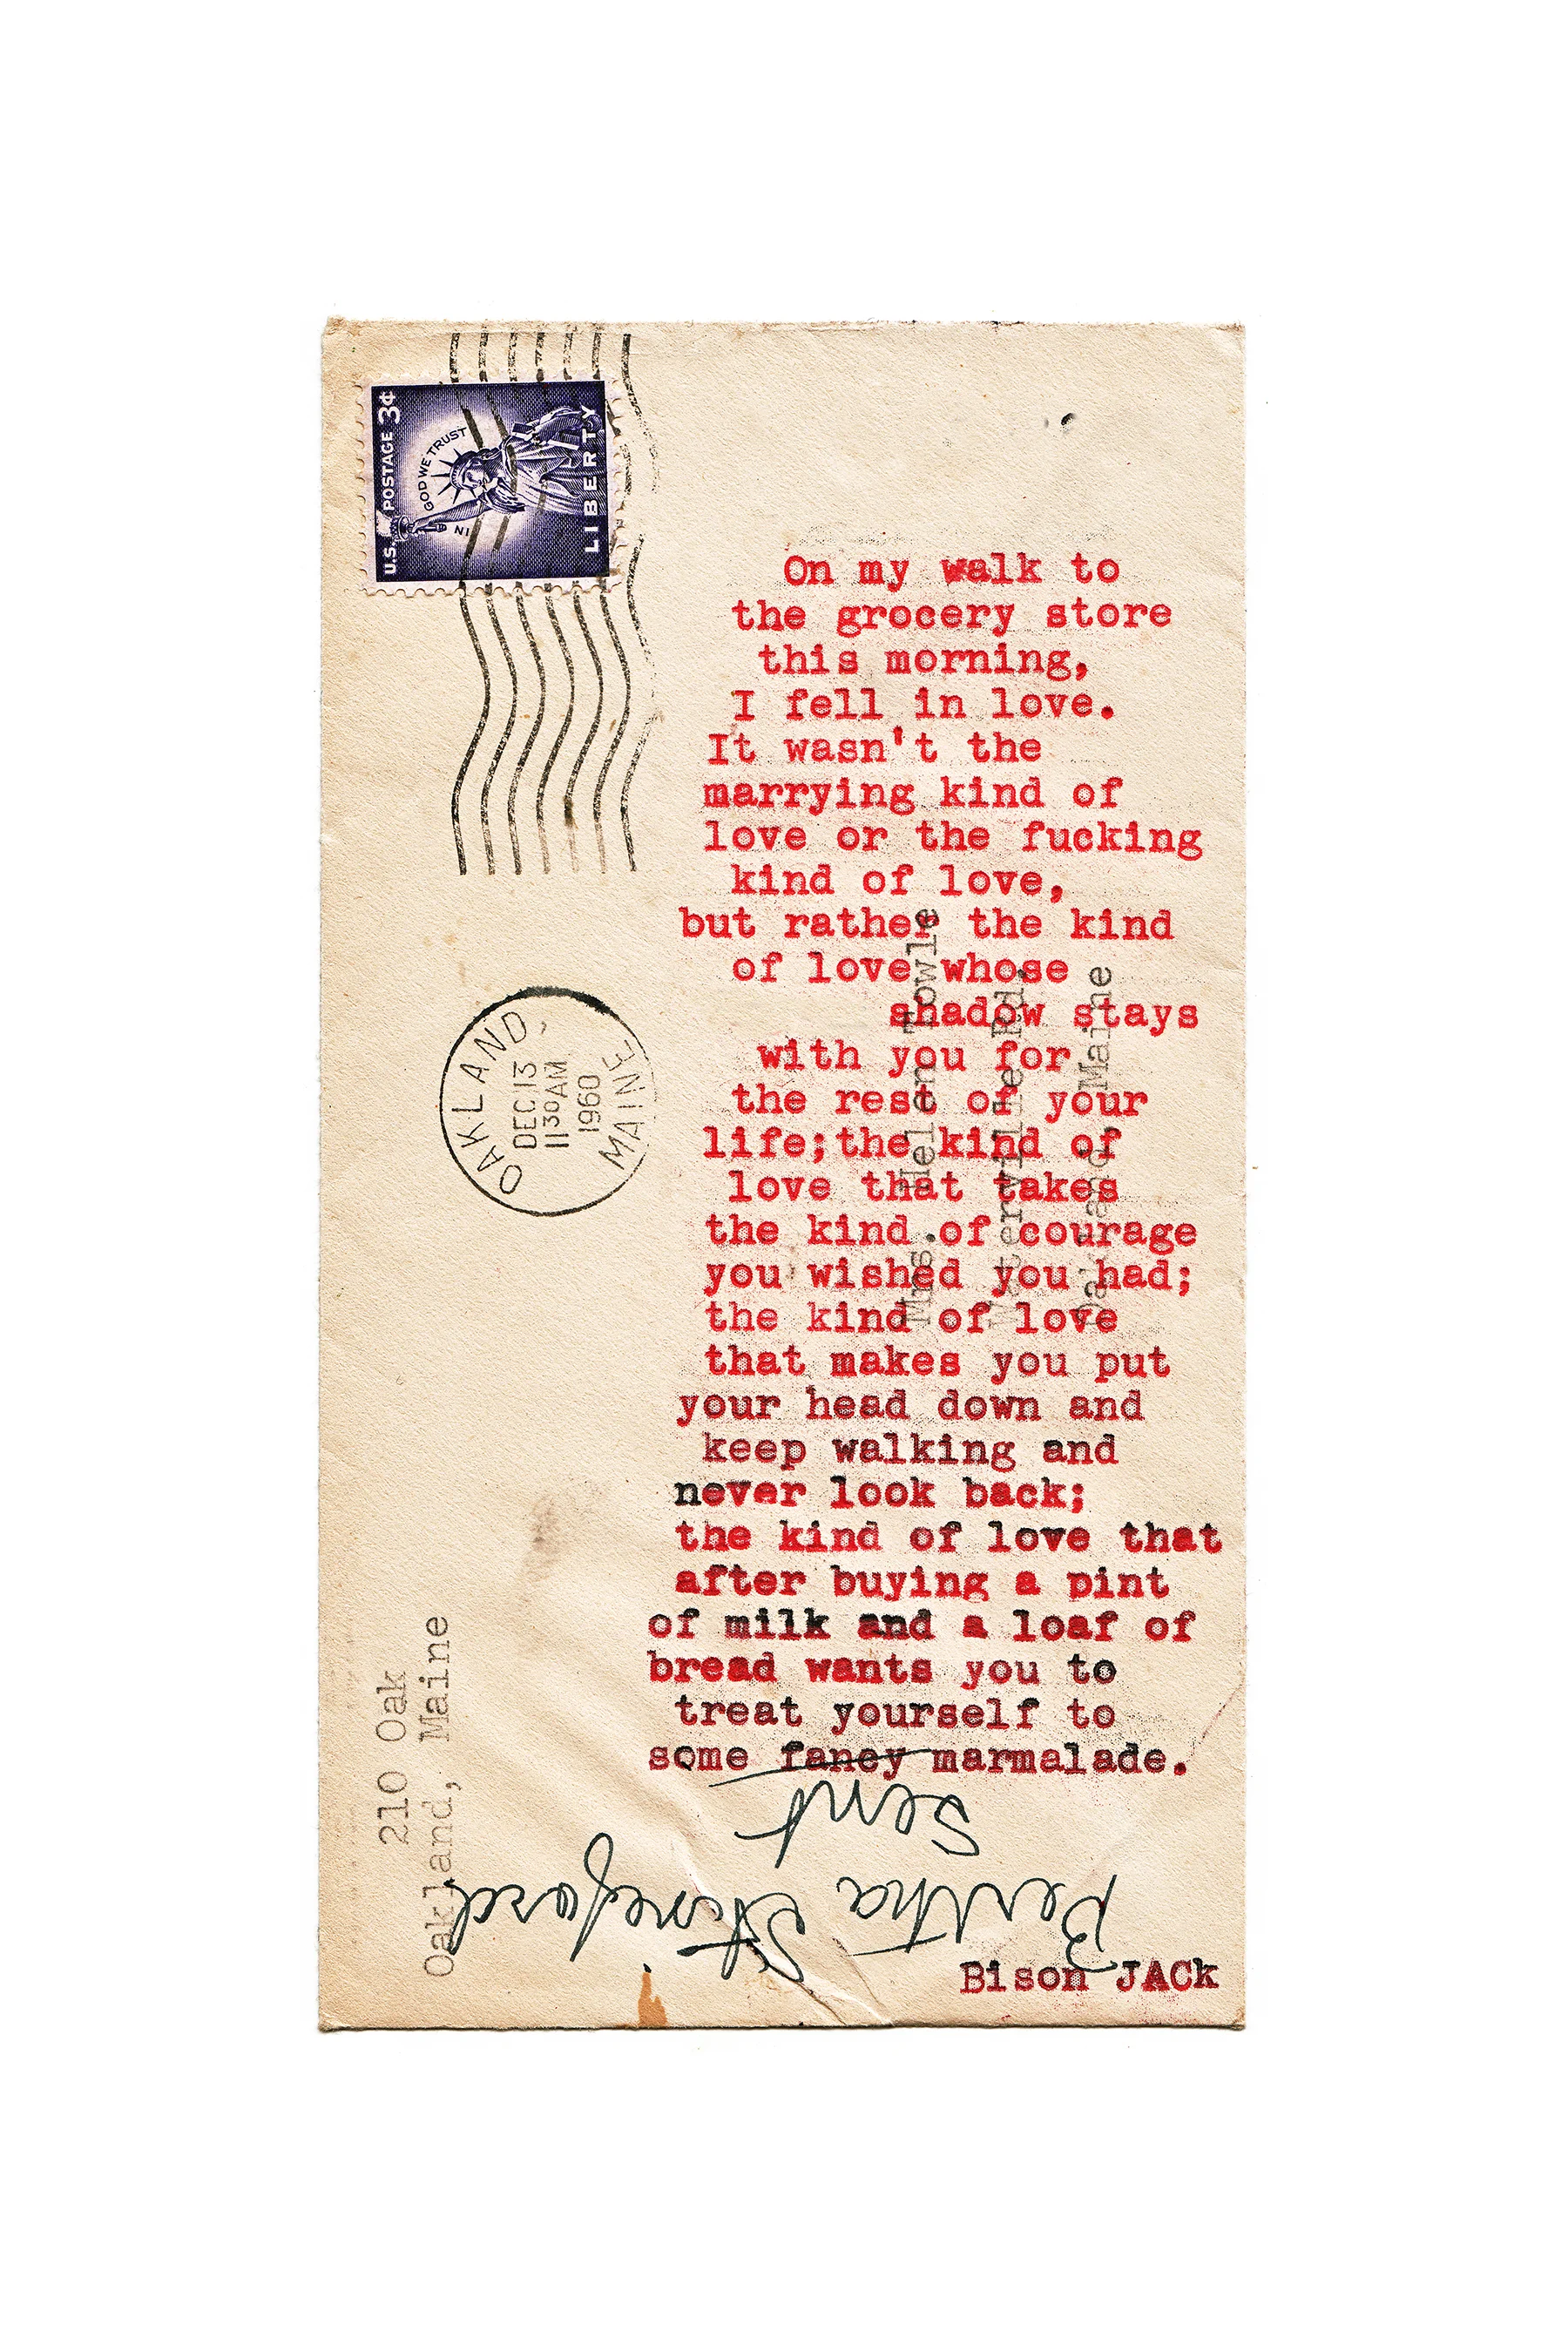 U.S. POSTAGE 3¢
IN GOD WE TRUST
LIBERTY
OAKLAND,
DEC 13
11 30 AM
1960
MAINE
On my walk to
the grocery store
this morning,
I fell in love.
It wasn't the
marrying kind of
love or the fucking
kind of love,
but rather the kind
of love whose
shadow stays
with you for
the rest of your
life;the kind of
love that takes
the kind of courage
you wished you had;
the kind of love
that makes you put
your head down and
keep walking and
never look back;
the kind of love that
after buying a pint
of milk and a loaf of
bread wants you to
treat yourself to
some fancy marmalade.
Bison JACk
Mrs. Helen Towle
Waterville Rd.
Oakland, Maine
210 Oak
Oakland, Maine
Sent
Bertha